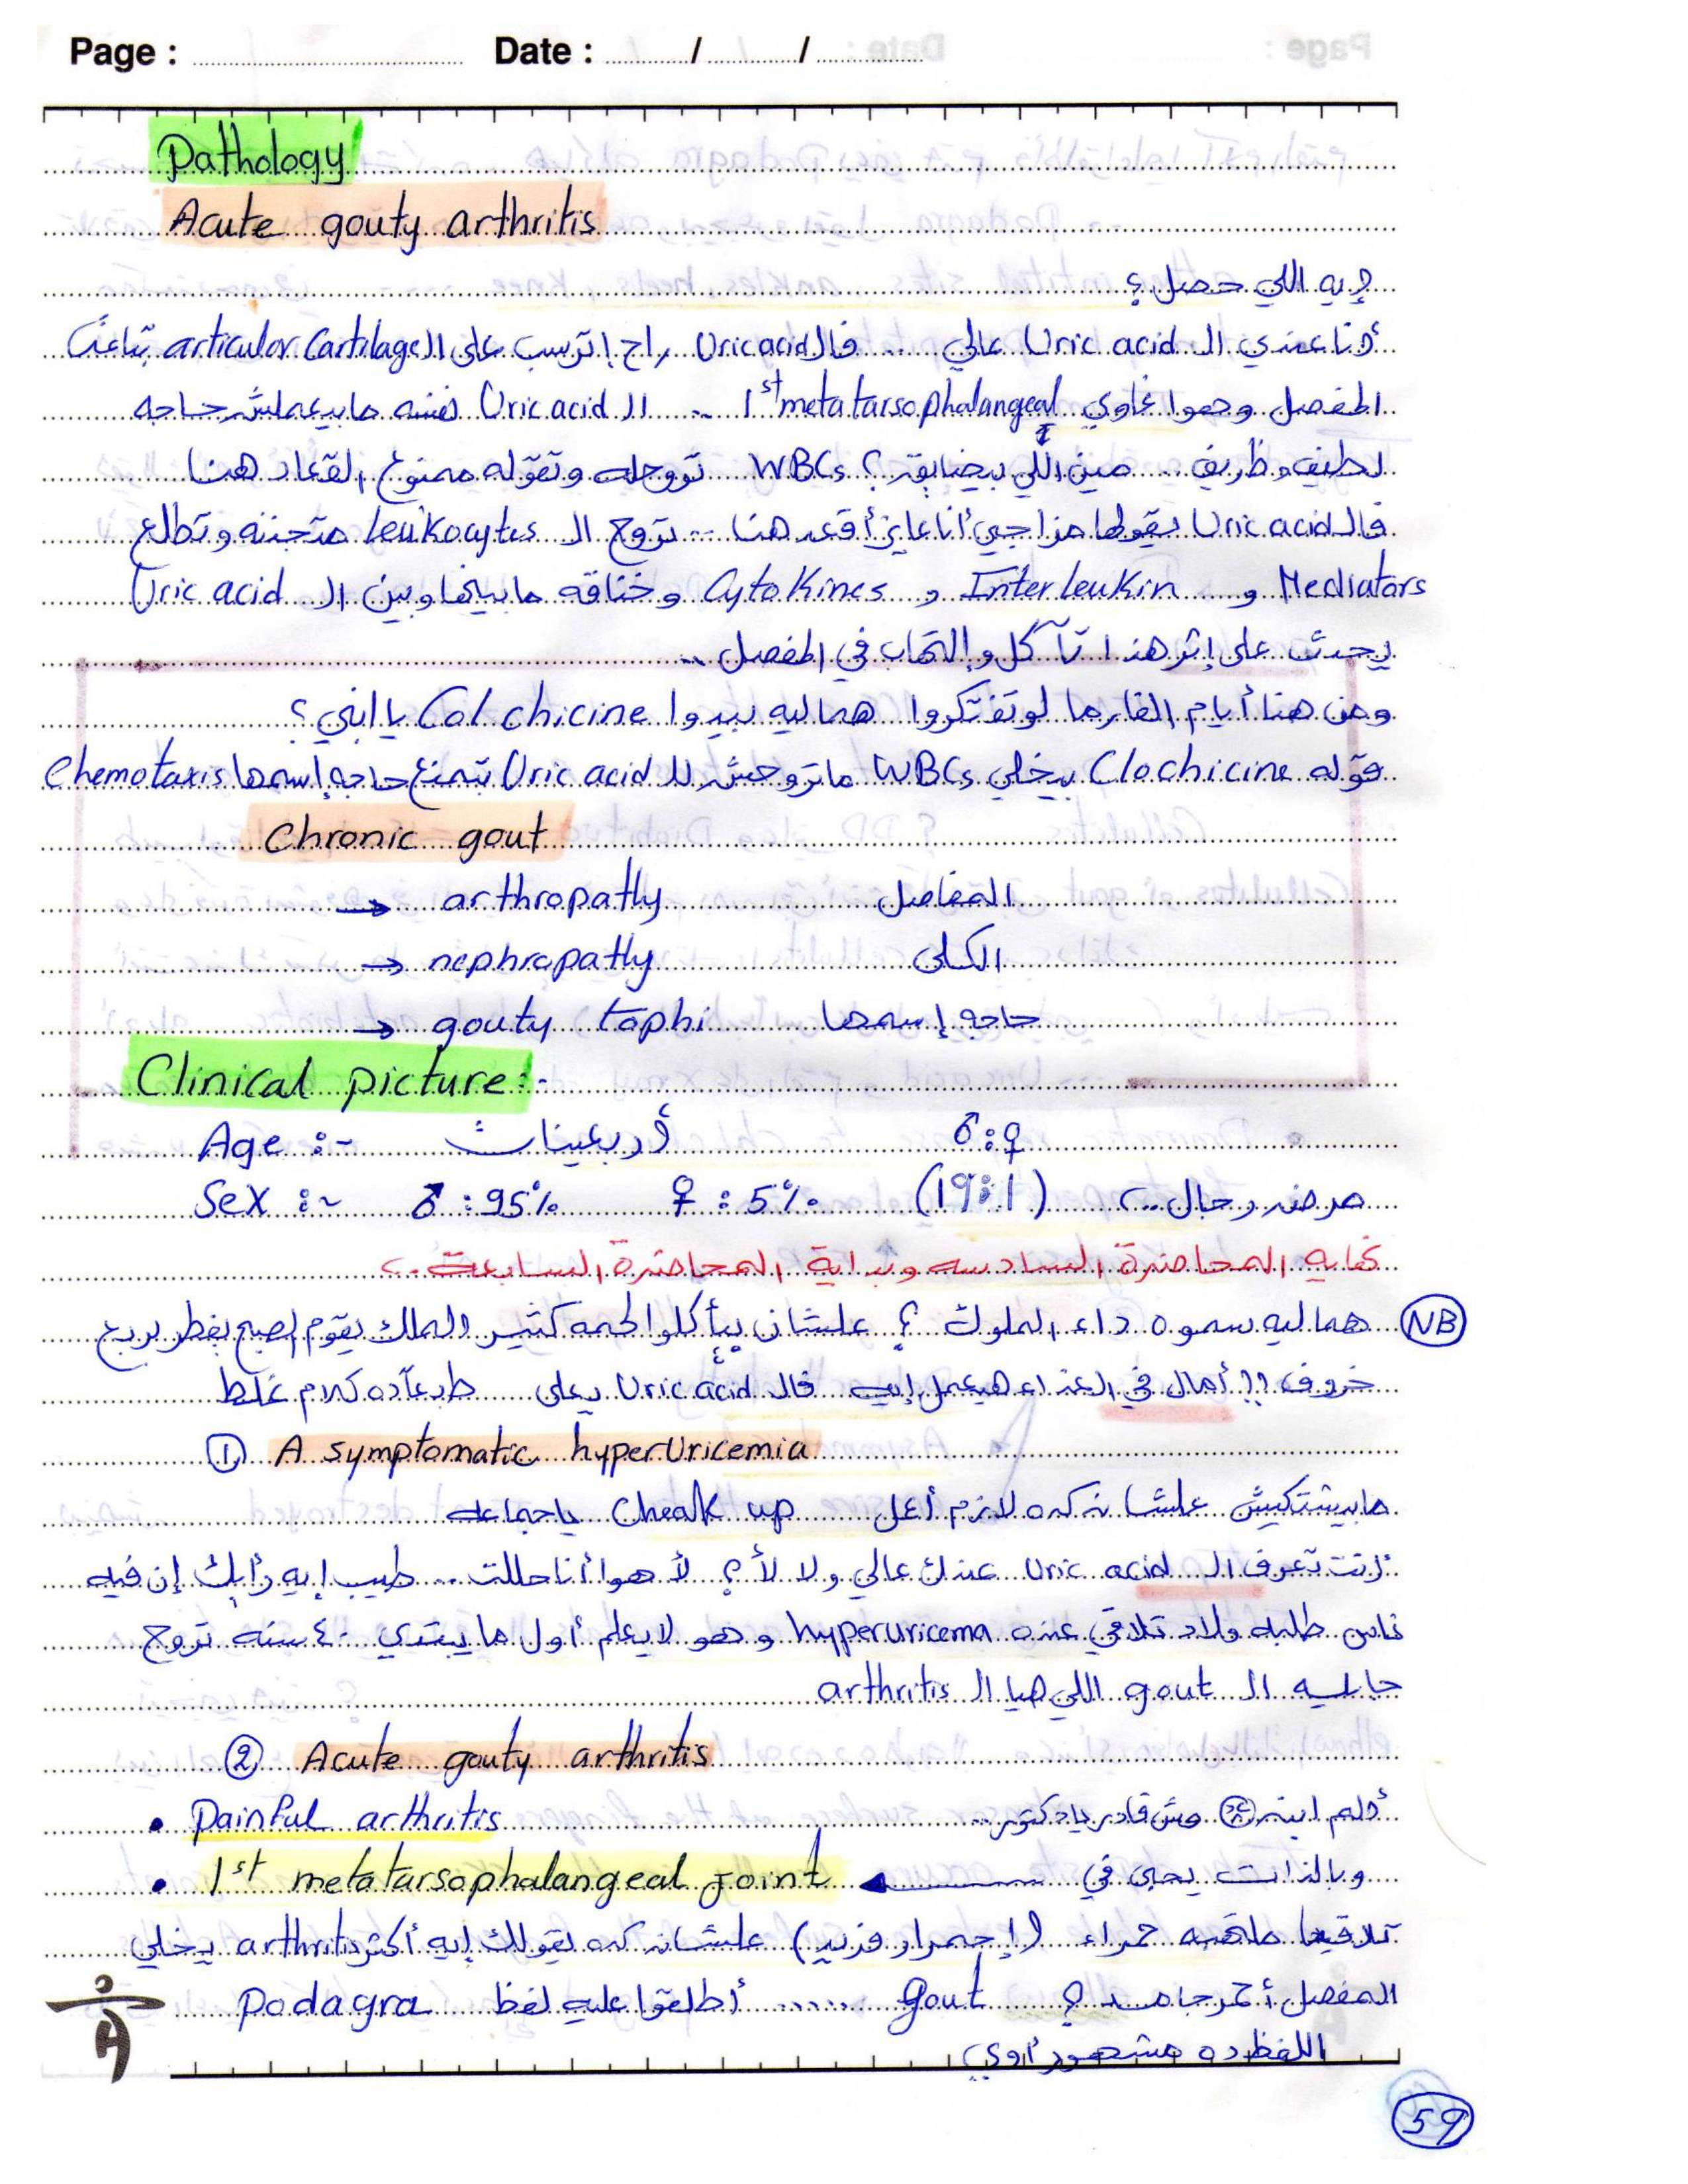 Page : Date : / /
Pathology
Acute gouty arthritis
إيه اللي حصل؟
أنا عندي الـ Uric acid عالي .... فالـ Uric acid راح إترسب على الـ articular Cartilage بتاعت
المفصل وهوا غاوي 1st metatarsophalangeal .. الـ Uric acid نفسه مابيعملش حاجه
لطيف وظريف ... مين اللي بيضايقه؟ WBCs تروحله وتقوله ممنوع القعاد هنا
فالـ Uric acid يقولها مزاجي أنا عايز أقعد هنا .. تروح الـ leukocytes متجننه وتطلع
Mediators و Interleukin و Cytokines وخناقه مابينها وبين الـ Uric acid
يحدث على إثر هذا تآكل وإلتهاب في المفصل ..
ومن هنا أيام الفارما لو تفتكروا هما ليه بيدوا Colchicine يا ابني؟
قوله Clochicine بيخلي WBCs ماتروحش للـ Uric acid بتمنع حاجه إسمها chemotaxis
Chronic gout
→ arthropathy المفاصل
→ nephropathy الكلى
→ gouty tophi حاجه إسمها
Clinical picture:-
Age :- أربعينات ♂:♀
Sex :~ ♂ : 95% ♀ : 5% (19:1) مرض رجال ..
نهايه المحاضرة السادسه وبداية المحاضرة السابعة ..
NB هما ليه سموه داء الملوك ؟ علشان بيأكلوا لحمه كتير والملك يقوم الصبح يفطر بربع
خروف ؟؟ أمال في الغداء هيعمل إيه فالـ Uric acid يعلى طبعاً ده كلام غلط
① A symptomatic hyperUricemia
مابيشتكيش علشان كده لازم أعمل Cheak up ياجماعه
إنت تعرف الـ Uric acid عندك عالي ولا لأ ؟ لأ هوا أنا حللت .. طيب إيه رأيك إن فيه
ناس طلبه ولاد تلاقي عنده hyperuricema وهو لا يعلم أول ما يبتدي ٤٠ سنه تروح
جايه الـ gout اللي هيا الـ arthritis
② Acute gouty arthritis
• Painful arthritis ألم مش قادر يادكتور ..
• 1st metatarsophalangeal joint وبالذات يحي في
تلاقيها ملتهبه حمراء (إحمرار فزيد) علشان كده يقولك إيه أكتر arthritis يخلي
المفصل أحمر جامد ؟ gout ..... أطلقوا عليه لفظ Podagra
اللفظ ده مشهور أوي
59